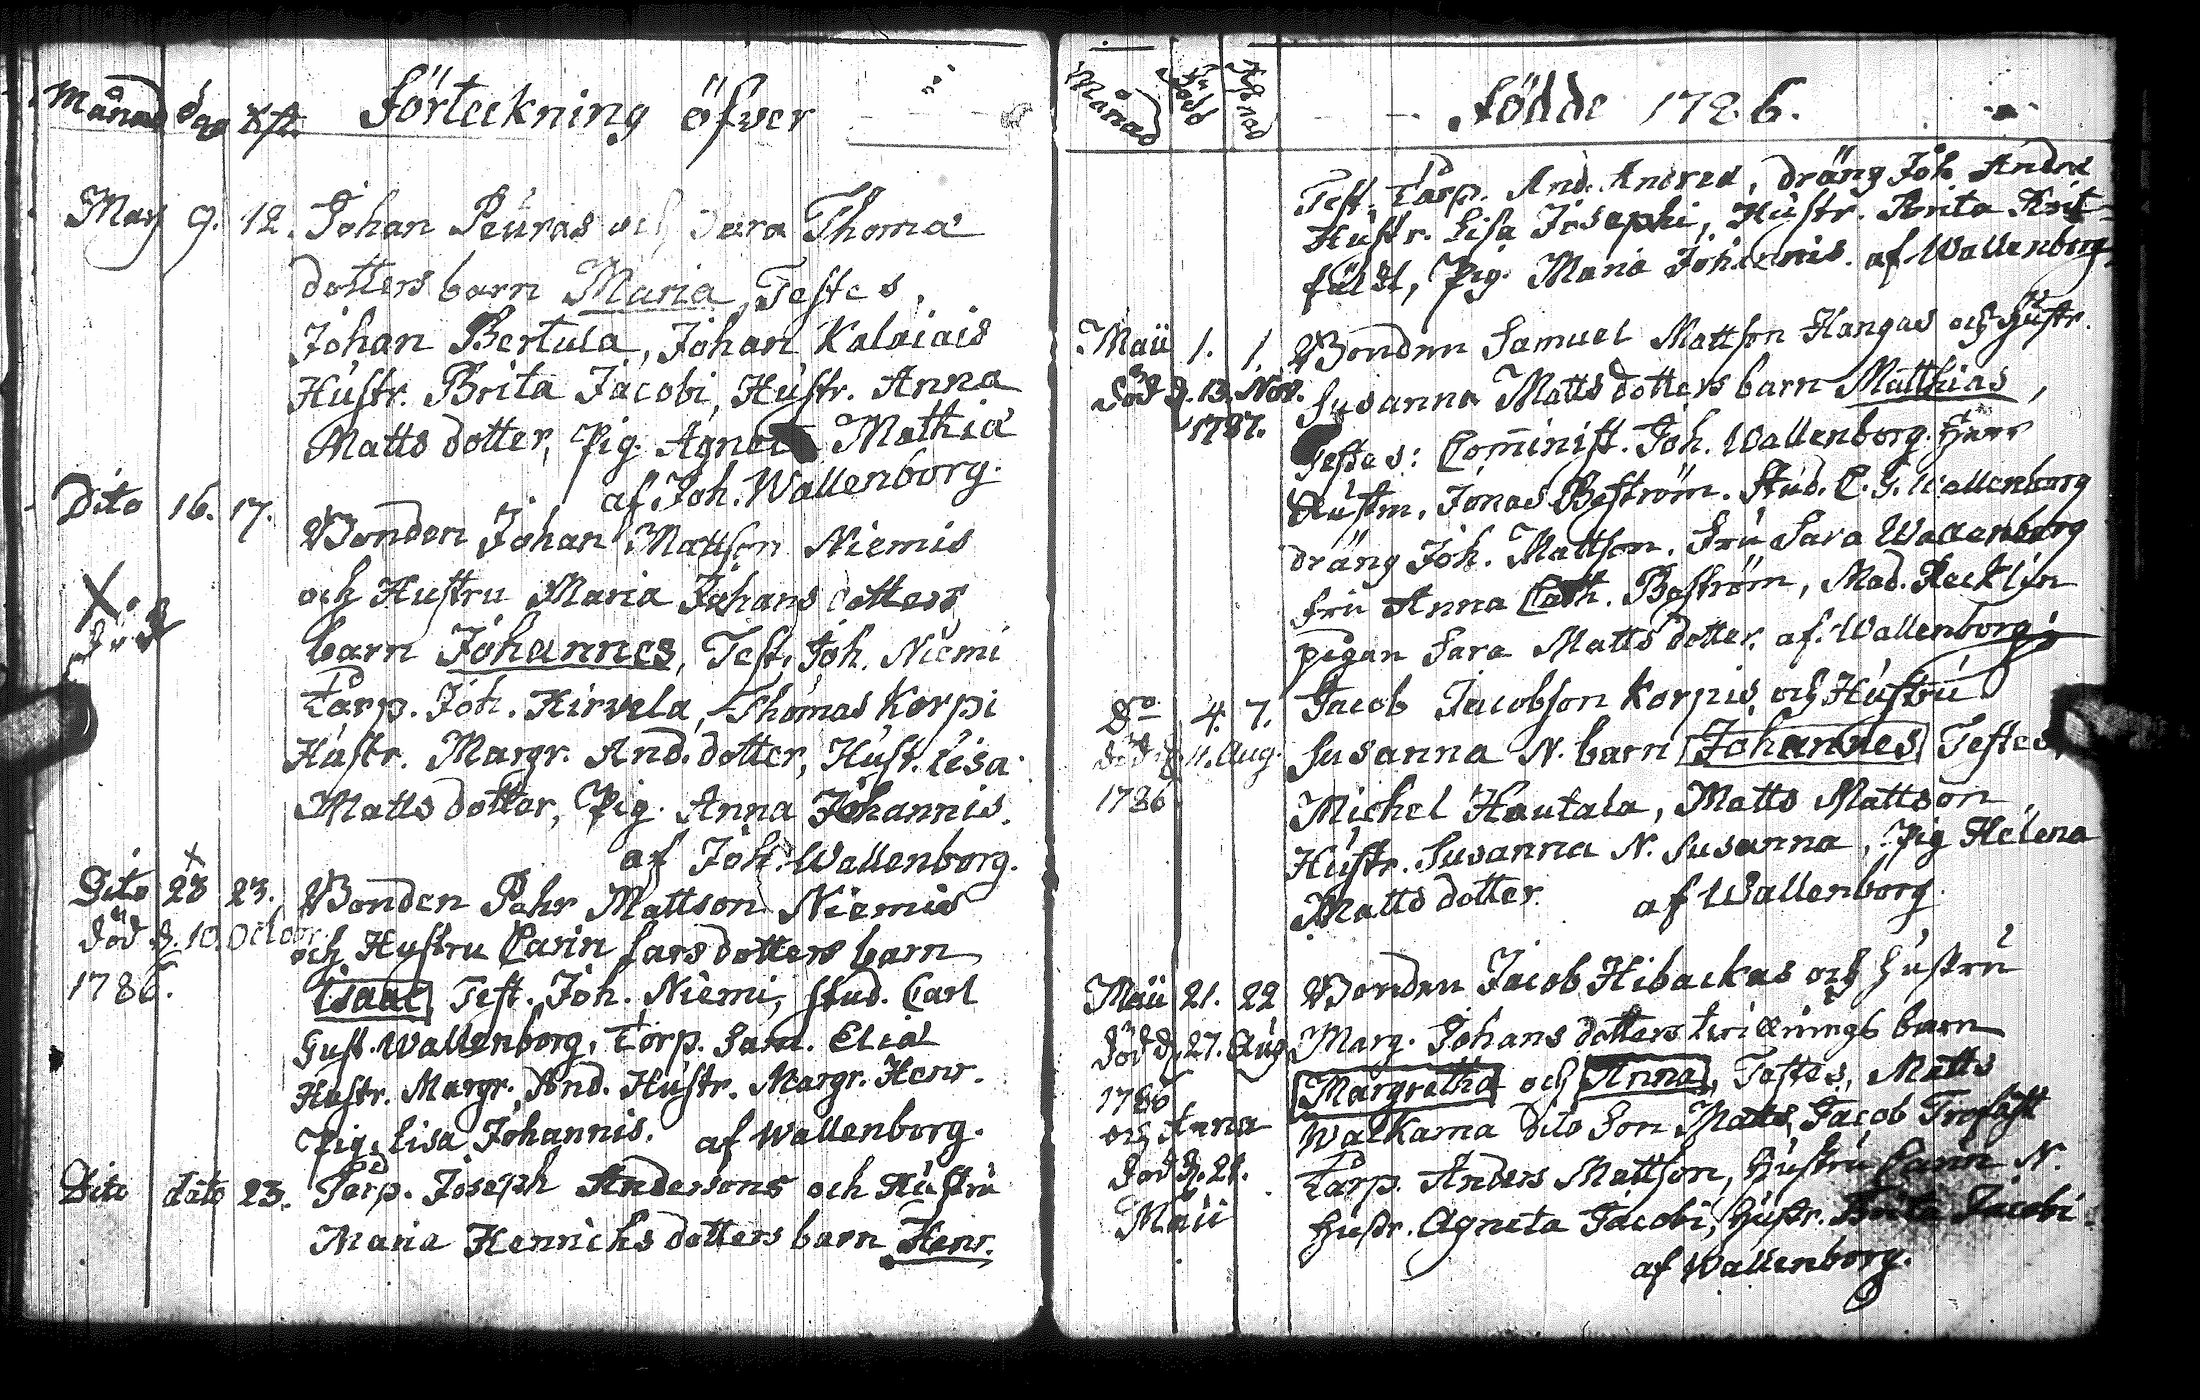 Månad dag dpt. Förteckning öfver
Maij 9. 12. Johan Peuras och Sara Thomæ
dotters barn Maria, Testes,
Johan Bertula, Johan Kalaiais
Hustr. Brita Jacobi, Hustr. Anna
Matts dotter, Pig. Agneta Mathiæ
af Joh. Wallenborg.
Dito 16. 17. Bonden Johan Mattson Niemis
och Hustru Maria Johans dotters
X. död
barn Johannes, Test. Joh. Niemi
Torp. Joh. Hirvela, Thomas Korpi
Hustr. Margr. And. dotter, Hust. Lisa
Matts dotter, Pig. Anna Johannis.
af Joh. Wallenborg.
Dito 23 x 23. Bonden Pehr Mattson Niemis
död d. 10. Octobr. och Hustru Carin Lars dotters barn
1786. Isaac Test. Joh. Niemi, Stud. Carl
Gust. Wallenborg, Torp. Sam. Eliæ
Hustr. Margr. And. Hustr. Margr. Henr.
Pig. Lisa Johannis. af Wallenborg.
Dito dato 23. Torp. Joseph Andersons och Hustru
Maria Henrichs dotters barn Henr.
Månad Född Christnad Födde 1786.
Test. Torp. And. Andreæ, dräng Joh. Andreæ
Hustr. Lisa Josephi, Hustr. Brita Krit-
fält, Pig. Maria Johannis. af Wallenborg.
Maii 1. 1. Bonden Samuel Mattson Hangas och Hustr.
död d. 13. Nov. Susanna Matts dotters barn Matthias,
1787. Testes: Cominist. Joh. Wallenborg. Herr
Austin, Jonas Boström. Stud. C. G. Wallenborg
dräng Joh. Mattson. Fru Sara Wallenborg
Fru Anna Cath. Boström, Mad. Recklin
pigan Sara Matts dotter. af Wallenborg.
do 4. 7. Jacob Jacobson Korpis, och Hustru
död d. 11. Aug. Susanna N. barn Johannes Testes,
1786 Michel Hautala, Matts Mattson,
Hustr. Susanna N. Susanna, Pig Helena
Matts dotter. af Wallenborg.
Maii 21. 22 Bonden Jacob Hibackas och Hustru
död d. 27. Aug. Marg. Johans dotters twillings barn
1786 Margretha och Anna, Testes, Matts
och Anna Walkama dito Son Matts, Jacob Trofast
död d. 28. Torp. Anders Mattson, Hustru Carin N.
Maii Hustr. Agneta Jacobi, Hustr. Brita Jacobi.
af Wallenborg.